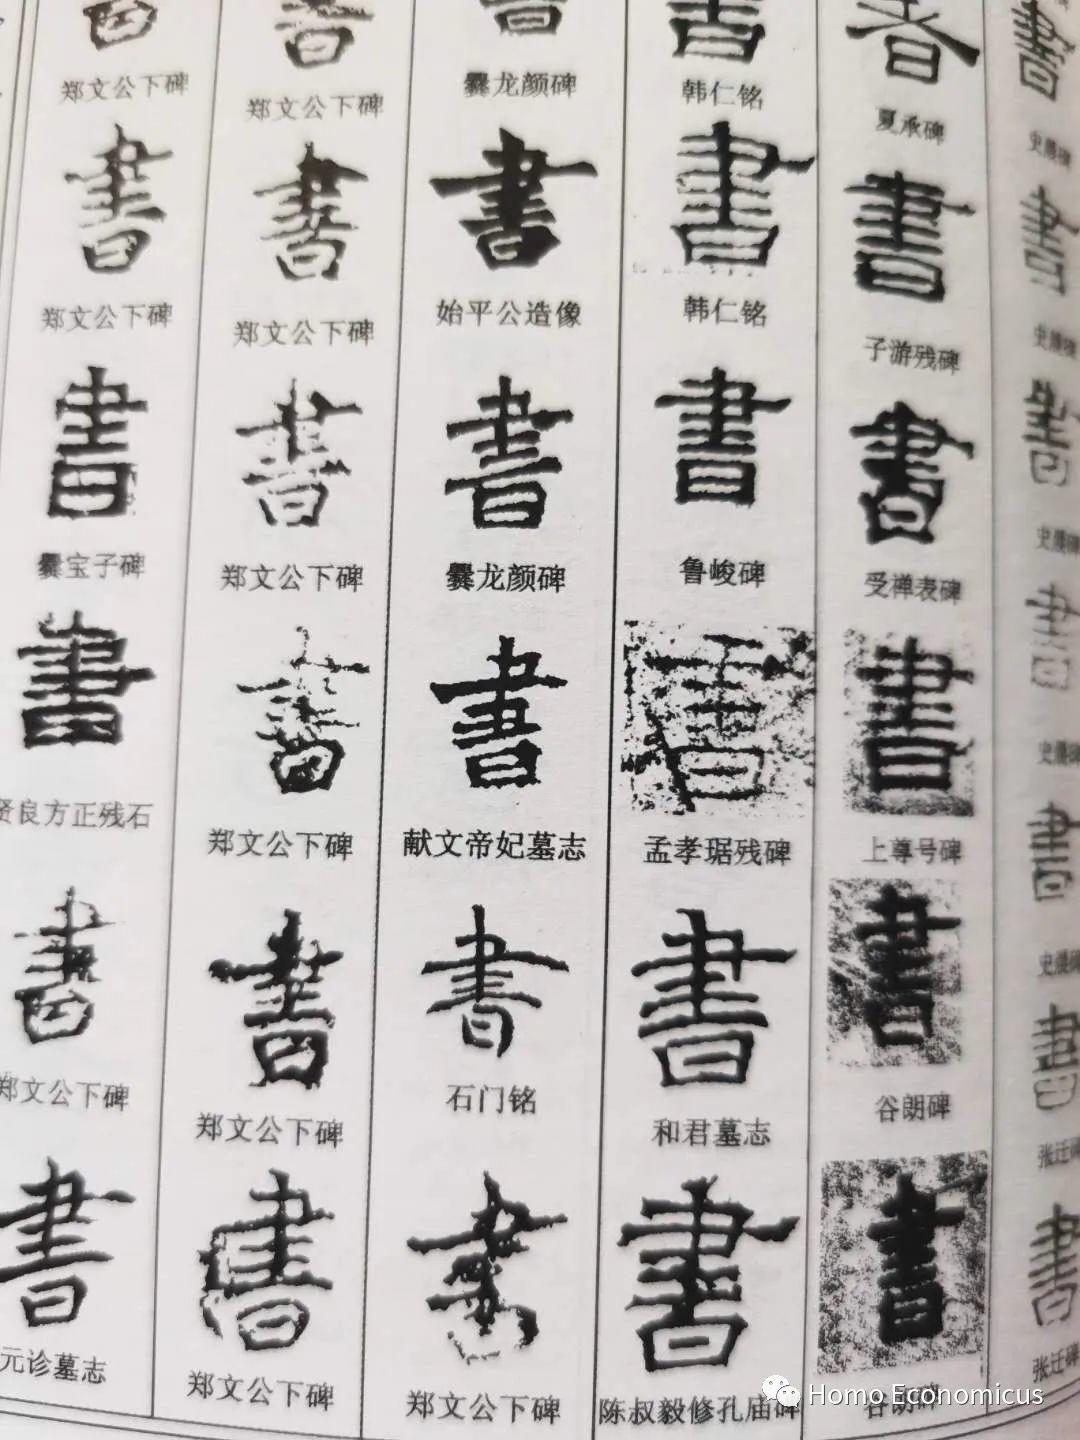 書
史晨碑
書
史晨碑
書
史晨碑
書
史晨碑
書
史晨碑
書
张迁碑
書
张迁碑
書
夏承碑
書
子游残碑
書
受禅表碑
書
上尊号碑
書
谷朗碑
書
谷朗碑
書
韩仁铭
書
韩仁铭
書
鲁峻碑
書
孟孝琚残碑
書
和君墓志
書
陈叔毅修孔庙碑
書
爨龙颜碑
書
始平公造像
書
爨龙颜碑
書
献文帝妃墓志
書
石门铭
書
郑文公下碑
書
郑文公下碑
書
郑文公下碑
書
郑文公下碑
書
郑文公下碑
書
郑文公下碑
書
郑文公下碑
書
郑文公下碑
書
郑文公下碑
書
爨宝子碑
書
贤良方正残石
書
郑文公下碑
書
元诊墓志
Homo Economicus